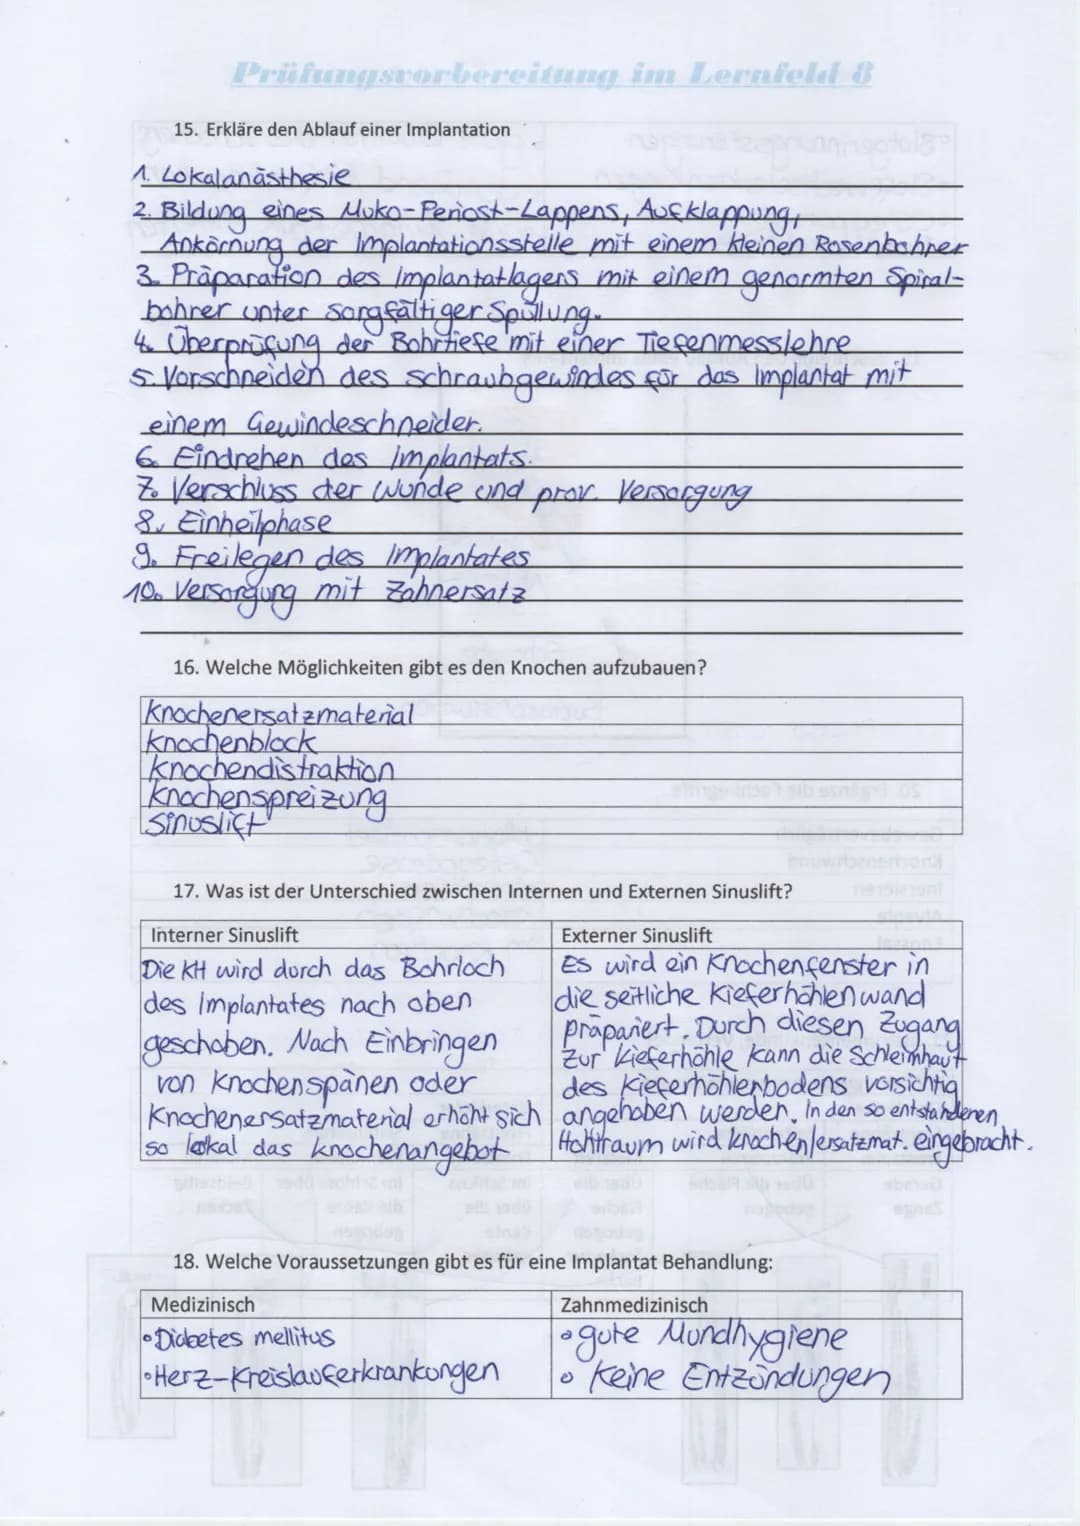 Prüfungsvorbereitung im Lernfeld 8
15. Erkläre den Ablauf einer Implantation
1. Lokalanästhesie
2. Bildung eines Muko-Periost-Lappens, Aufklappung,
Ankörnung der Implantationsstelle mit einem kleinen Rosenbohrer
3. Präparation des Implantatlagers mit einem genormten Spiral-
bohrer unter sorgfältiger Spülung.
4. Überprüfung der Bohrtiefe mit einer Tiefenmesslehre
5. Vorschneiden des schraubgewindes für das Implantat mit
einem Gewindeschneider.
6. Eindrehen des Implantats.
7. Verschluss der Wunde und prov. Versorgung
8. Einheilphase
9. Freilegen des Implantates
10. Versorgung mit Zahnersatz
16. Welche Möglichkeiten gibt es den Knochen aufzubauen?
Knochenersatzmaterial
Knochenblock
Knochendistraktion
Knochenspreizung
Sinuslift
17. Was ist der Unterschied zwischen Internen und Externen Sinuslift?
Interner Sinuslift
Die KH wird durch das Bohrloch
des Implantates nach oben
geschoben. Nach Einbringen
von Knochenspänen oder
Knochenersatzmaterial erhöht sich
so lokal das Knochenangebot
Externer Sinuslift
Es wird ein Knochenfenster in
die seitliche Kieferhöhlenwand
präpariert. Durch diesen Zugang
zur Kieferhöhle kann die Schleimhaut
des Kieferhöhlenbodens vorsichtig
angehoben werden. In den so entstandenen
Hohlraum wird knochen/ersatzmat. eingebracht.
18. Welche Voraussetzungen gibt es für eine Implantat Behandlung:
Medizinisch
• Diabetes mellitus
• Herz-Kreislauferkrankungen
Zahnmedizinisch
• gute Mundhygiene
• Keine Entzündungen